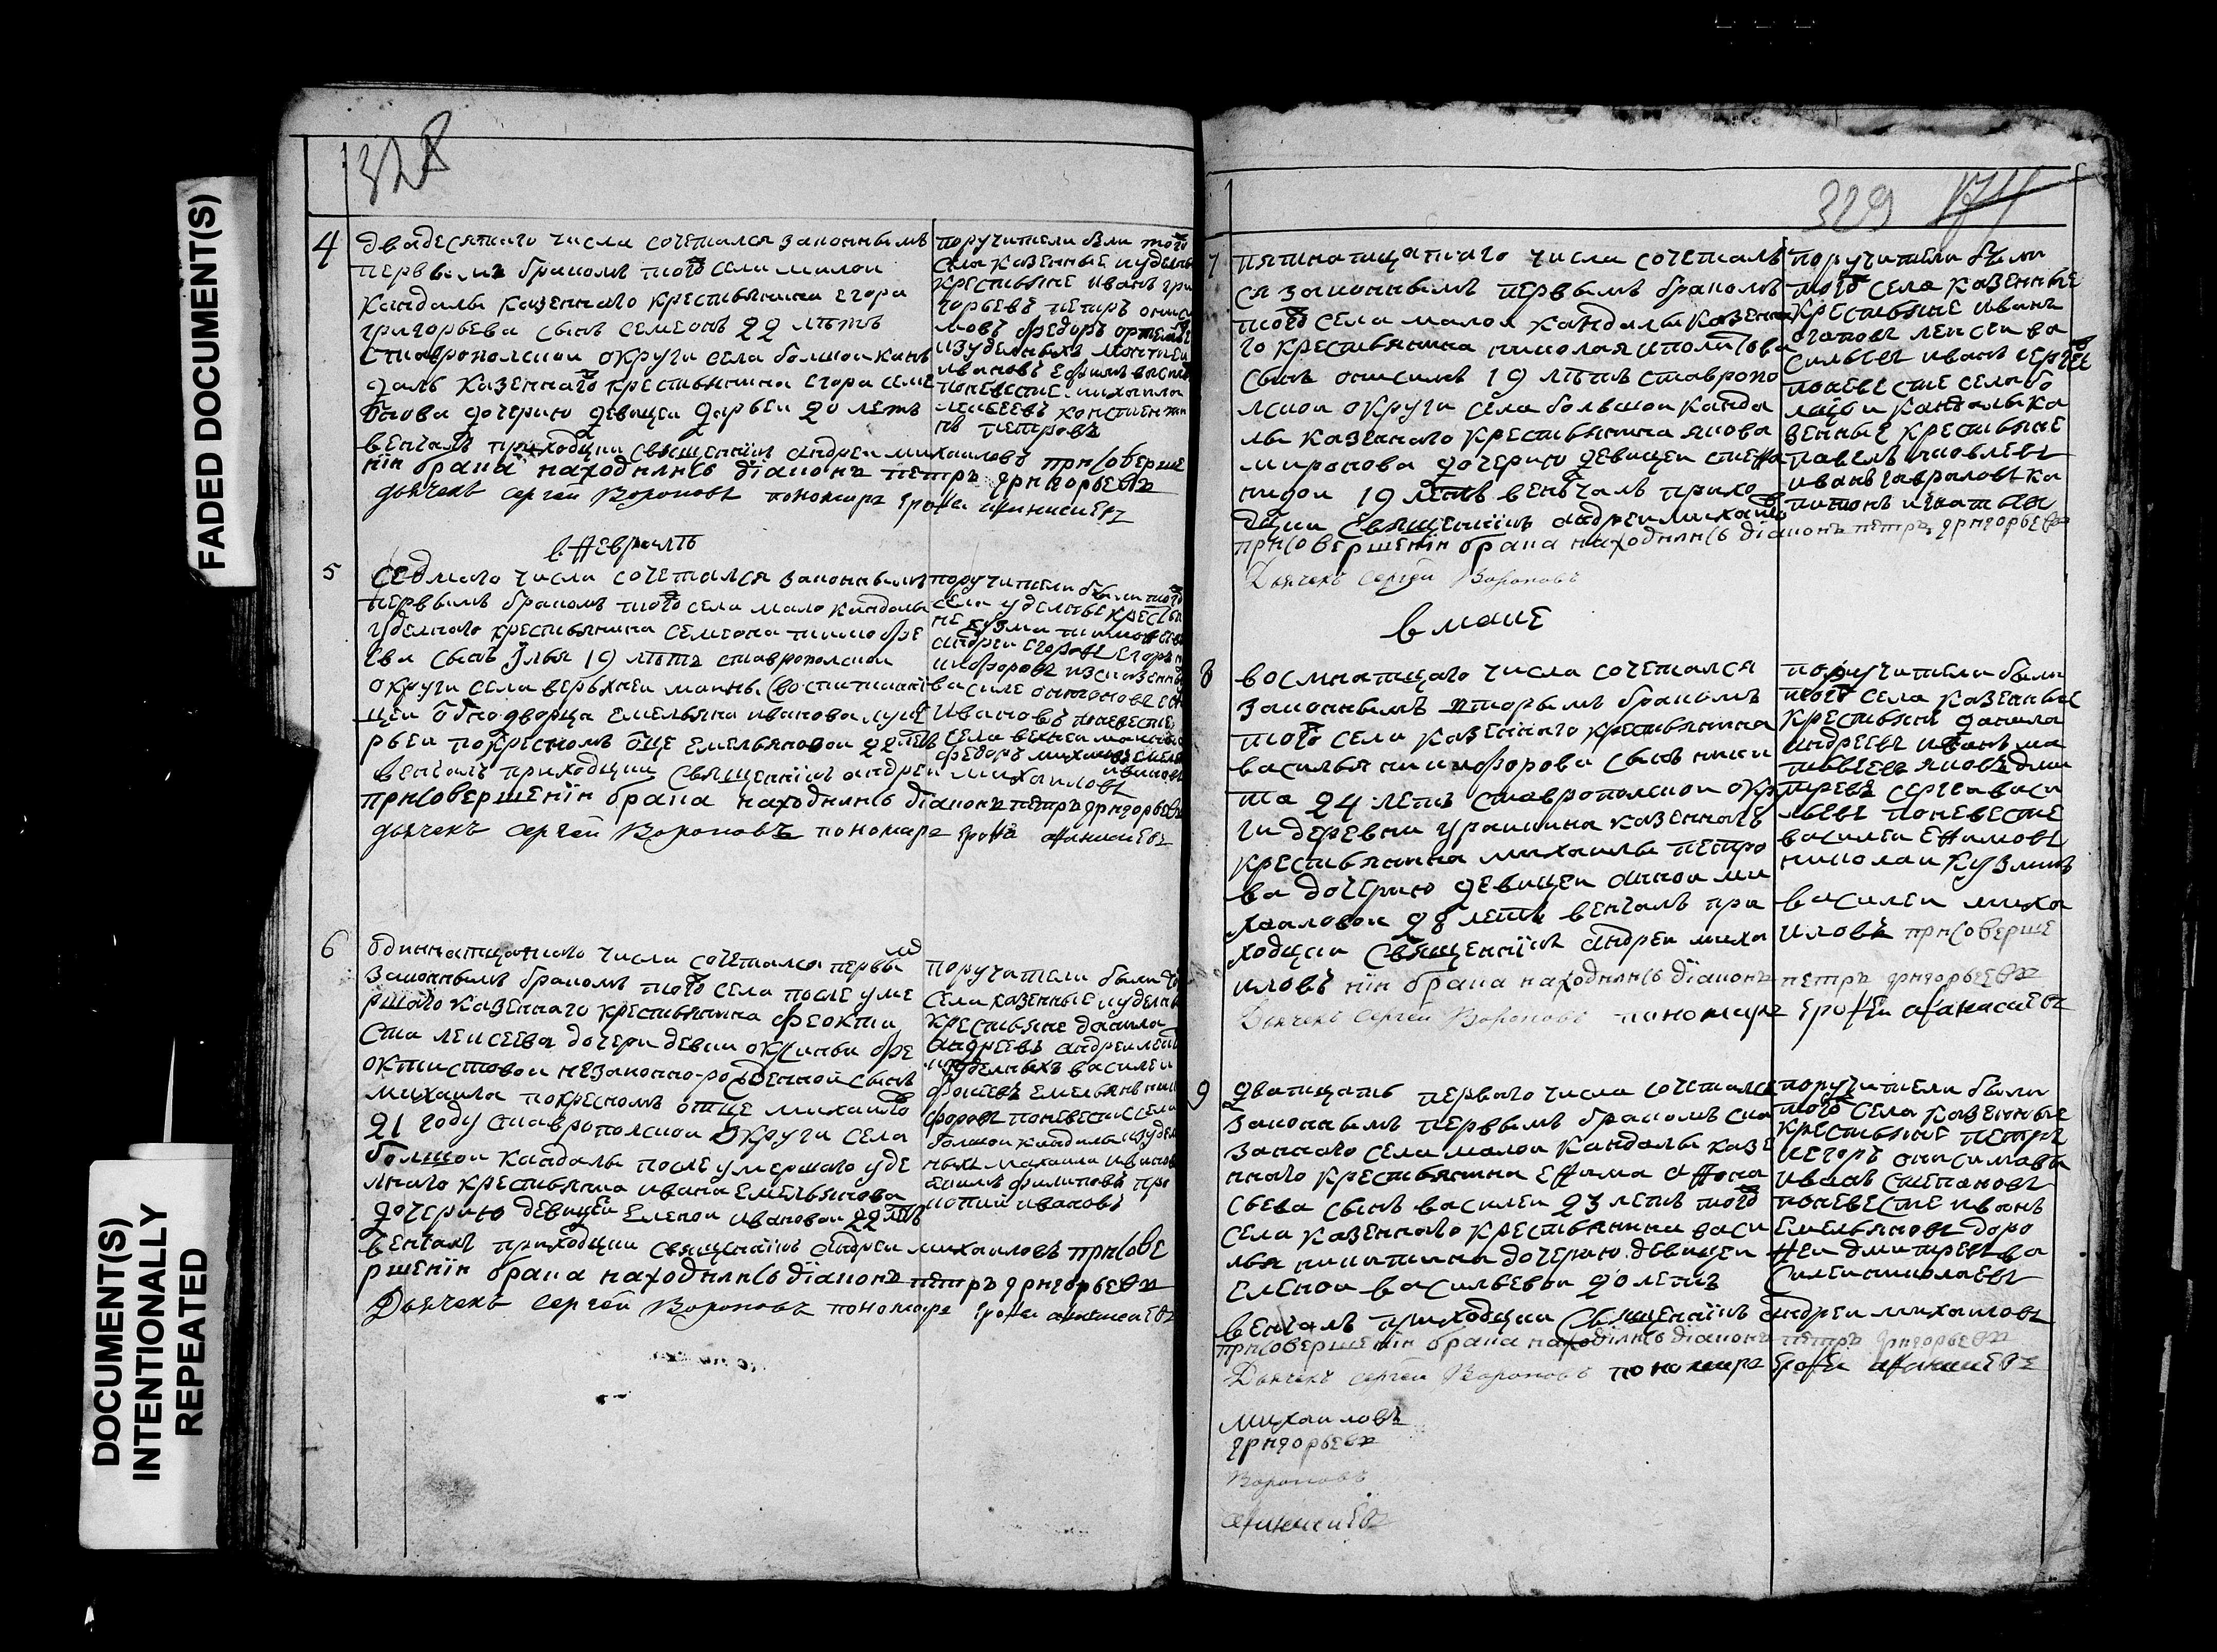 FADED DOCUMENT(S)
DOCUMENT(S)
INTENTIONALLY
REPEATED
328
4
двадесятаго числа сочетался законнымъ
первымъ бракомъ того села малои
кандалы казеннаго крестьянина егора
григорьева сынъ семеонъ 22 летъ
ставропольскои округи села болшои кан
далы казеннаго крестьянина егора семе
онова дочерию девицеи дарьеи 20 летъ
венчалъ приходции священникъ андреи михаиловъ присоверше
нiи брака находились дiаконъ петръ григорьевъ
дьячекъ сергей Вороновъ пономарь ерофеи афанасиевъ
поручители были того
села казенные и уделные
крестьяне иванъ гри
горьевъ петръ ониси
мовъ федоръ артемьев
изуделныхъ
ивановъ ефимъ васил
поневесте михаила
алексеевъ константи
нъ петровъ
в Февралѣ
5
седмаго числа сочетался законнымъ
первымъ бракомъ того села мало кандалы
уделнаго крестьянина семеона тимофе
ева сынъ Илья 19 летъ ставропольскои
округи села верьхнеи маины воспитанни
цеи однодворца емельяна иванова луке
рьеи покресномъ отце емельяновои 22 летъ
венчалъ приходции священникъ андреи михаиловъ
присовершенiи брака находились дiаконъ петръ григорьевъ
дьячекъ сергей Вороновъ пономарь ерофеи афанасиевъ
поручители были того
села уделные крестья
не кузма тимофеевъ
андреи егоровъ егоръ
никифоровъ изказенных
василеи антоновъ
ивановъ поневесте
села верхнеи маины
федоръ михаиловъ емельян
ивановъ
6
одиннатцатаго числа сочетался первымъ
законнымъ бракомъ того села после уме
ршаго казеннаго крестьянина феокти
ста алексеева дочери девки оксиньи фе
октистовои незаконно-рожденной сынъ
михаила покресномъ отце михаиловъ
21 году ставропольскои округи села
болшои кандалы после умершаго уде
лнаго крестьянина ивана емельянова
дочерию девицеи еленои ивановои 22 летъ
венчалъ приходции священникъ андреи михаиловъ присове
ршенiи брака находились дiаконъ петръ григорьевъ
Дьячекъ сергей Вороновъ пономарь ерофеи афанасиевъ
поручители были того
села казенные и уделны
крестьяне данила
андреевъ андреи
изуделныхъ василеи
фокеевъ емельянъ ники
форовъ поневесте села
болшои кандалы изудел
ныхъ михаила иванов
екимъ филиповъ про
копий ивановъ
329
7
пятнатцатаго числа сочетал
ся законнымъ первымъ бракомъ
того села малои кандалы казенна
го крестьянина николая иполитова
сынъ онисимъ 19 летъ ставропо
лскои округи села большои канда
лы казеннаго крестьянина якова
миронова дочерию девицеи степа
нидои 19 летъ венчалъ прихо
дции священникъ андреи михаиловъ
присовершенiи брака находились дiаконъ петръ григорьевъ
Дьячекъ сергей Вороновъ
поручители были
того села казенные
крестьяне иванъ
агаповъ алексеи ва
сильевъ иванъ сергеевъ
поневесте села бо
лшои кандалы ка
зенные крестьяне
павелъ яковлевъ
иванъ гавриловъ ка
питонъ игнатьевъ
в маие
8
восмнатцаго числа сочетался
законнымъ вторымъ бракомъ
того села казеннаго крестьянина
василья никифорова сынъ ники
та 24 летъ ставропольскои окру
ги деревни урайкина казеннаго
крестьянина михаилы петро
ва дочерию девицеи анной ми
хаиловои 28 летъ венчалъ при
ходции священникъ андреи миха
иловъ нiи брака находились дiаконъ петръ григорьевъ
Дьячекъ сергей Вороновъ пономарь ерофеи афанасиевъ
поручители были
того села казенныя
крестьяне данила
андреевъ иванъ ма
твеевъ яковъ дми
триевъ сергеи васи
льевъ поневесте
василеи ефимовъ
николаи кузминъ
василеи миха
иловъ присоверше
9
дватцать перваго числа сочетался
законнымъ первымъ бракомъ ска
заннаго села малои кандалы казе
ннаго крестьянина ефима афона
сьева сынъ василеи 23 летъ того
села казеннаго крестьянина васи
лья никитина дочерию девицеи
еленои васильевои 20 летъ
венчалъ приходции священникъ андреи михаиловъ
присовершенiи брака находились дiаконъ петръ григорьевъ
Дьячекъ сергей Вороновъ пономарь ерофеи афанасиевъ
поручители были
того села казенные
крестьяне петръ
иегоръ онисимовы
иванъ степановъ
поневесте иванъ
емельяновъ доро
феи дмитриевъ ва
силеи николаевъ
михаиловъ
григорьевъ
Вороновъ
афанасиевъ